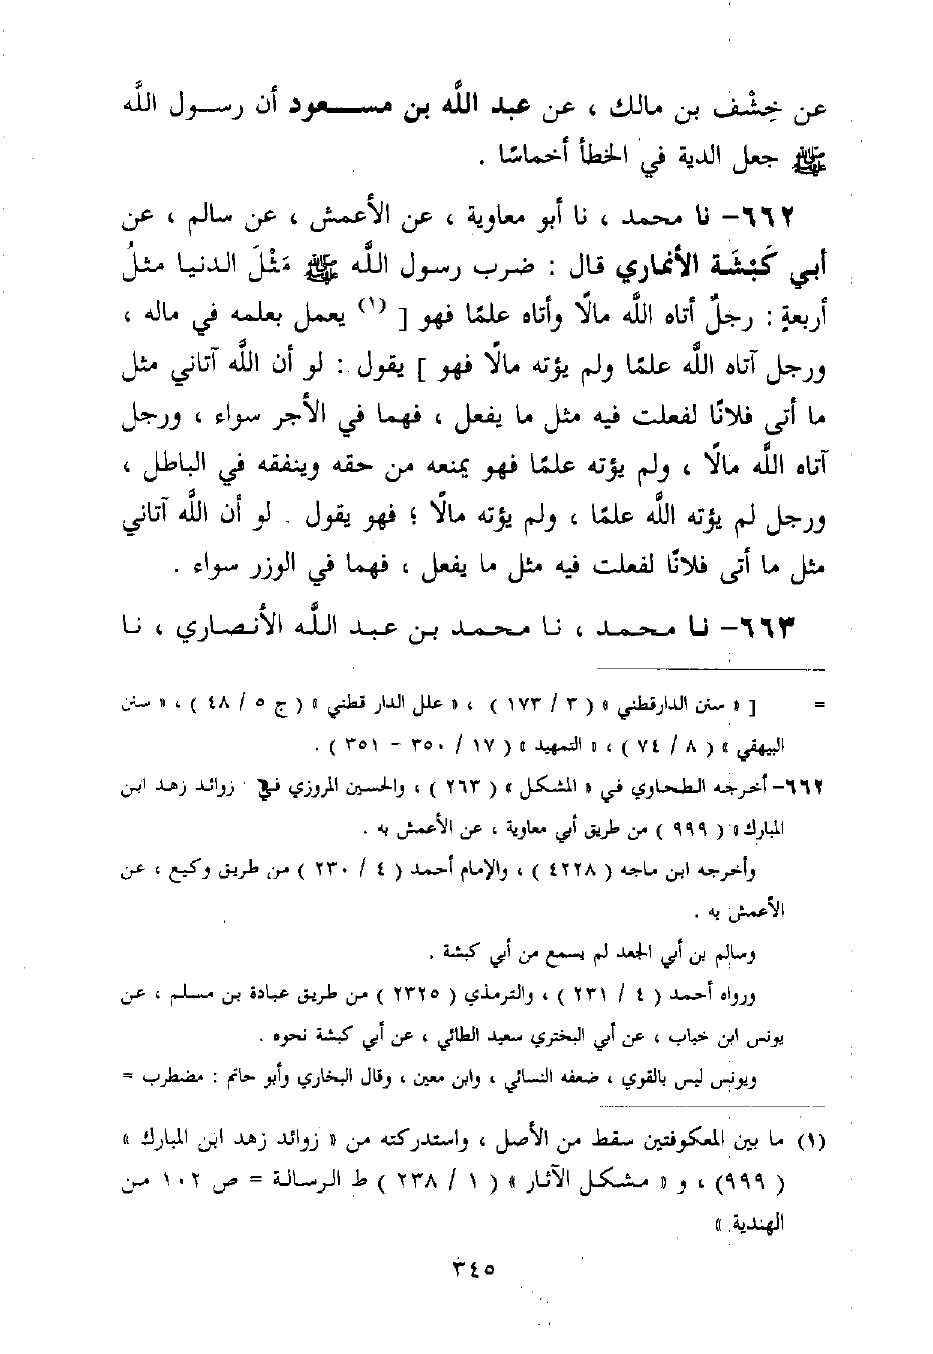 عن خِشْف بن مالك ، عن عبد اللَّه بن مسعود أن رسول اللَّه
ﷺ جعل الدية في الخطأ أخماسًا .
٦٦٢- نا محمد ، نا أبو معاوية ، عن الأعمش ، عن سالم ، عن
أبي كَبْشَة الأنماري قال : ضرب رسول اللَّه ﷺ مَثْلَ الدنيا مثلُ
أربعةٍ : رجلٌ أتاه اللَّه مالًا وأتاه علمًا فهو [ (١) يعمل بعلمه في ماله ،
ورجل آتاه اللَّه علمًا ولم يؤته مالًا فهو ] يقول : لو أن اللَّه آتاني مثل
ما أتى فلانًا لفعلت فيه مثل ما يفعل ، فهما في الأجر سواء ، ورجل
آتاه اللَّه مالًا ، ولم يؤته علمًا فهو يمنعه من حقه وينفقه في الباطل ،
ورجل لم يؤته اللَّه علمًا ، ولم يؤته مالًا ؛ فهو يقول . لو أن اللَّه آتاني
مثل ما أتى فلانًا لفعلت فيه مثل ما يفعل ، فهما في الوزر سواء .
٦٦٣- نا محمد ، نا محمد بن عبد اللَّه الأنصاري ، نا
= [ « سنن الدارقطني » ( ٣ / ١٧٣ ) ، « علل الدار قطني » ( ج ٥ / ٤٨ ) ، « سنن
البيهقي » ( ٨ / ٧٤ ) ، « التمهيد » ( ١٧ / ٣٥٠ - ٣٥١ ) .
٦٦٢- أخرجه الطحاوي في « المشكل » ( ٢٦٣ ) ، والحسين المروزي في زوائد زهد ابن
المبارك » ( ٩٩٩ ) من طريق أبي معاوية ، عن الأعمش به .
وأخرجه ابن ماجه ( ٤٢٢٨ ) ، والإمام أحمد ( ٤ / ٢٣٠ ) من طريق وكيع ، عن
الأعمش به .
وسالم بن أبي الجعد لم يسمع من أبي كبشة .
ورواه أحمد ( ٤ / ٢٣١ ) ، والترمذي ( ٢٣٢٥ ) من طريق عبادة بن مسلم ، عن
يونس ابن خباب ، عن أبي البختري سعيد الطائي ، عن أبي كبشة نحوه .
ويونس ليس بالقوي ، ضعفه النسائي ، وابن معين ، وقال البخاري وأبو حاتم : مضطرب =
(١) ما بين المعكوفتين سقط من الأصل ، واستدركته من « زوائد زهد ابن المبارك »
( ٩٩٩) ، و « مشكل الآثار » ( ١ / ٢٣٨ ) ط الرسالة = ص ١٠٢ من
الهندية. »
٣٤٥